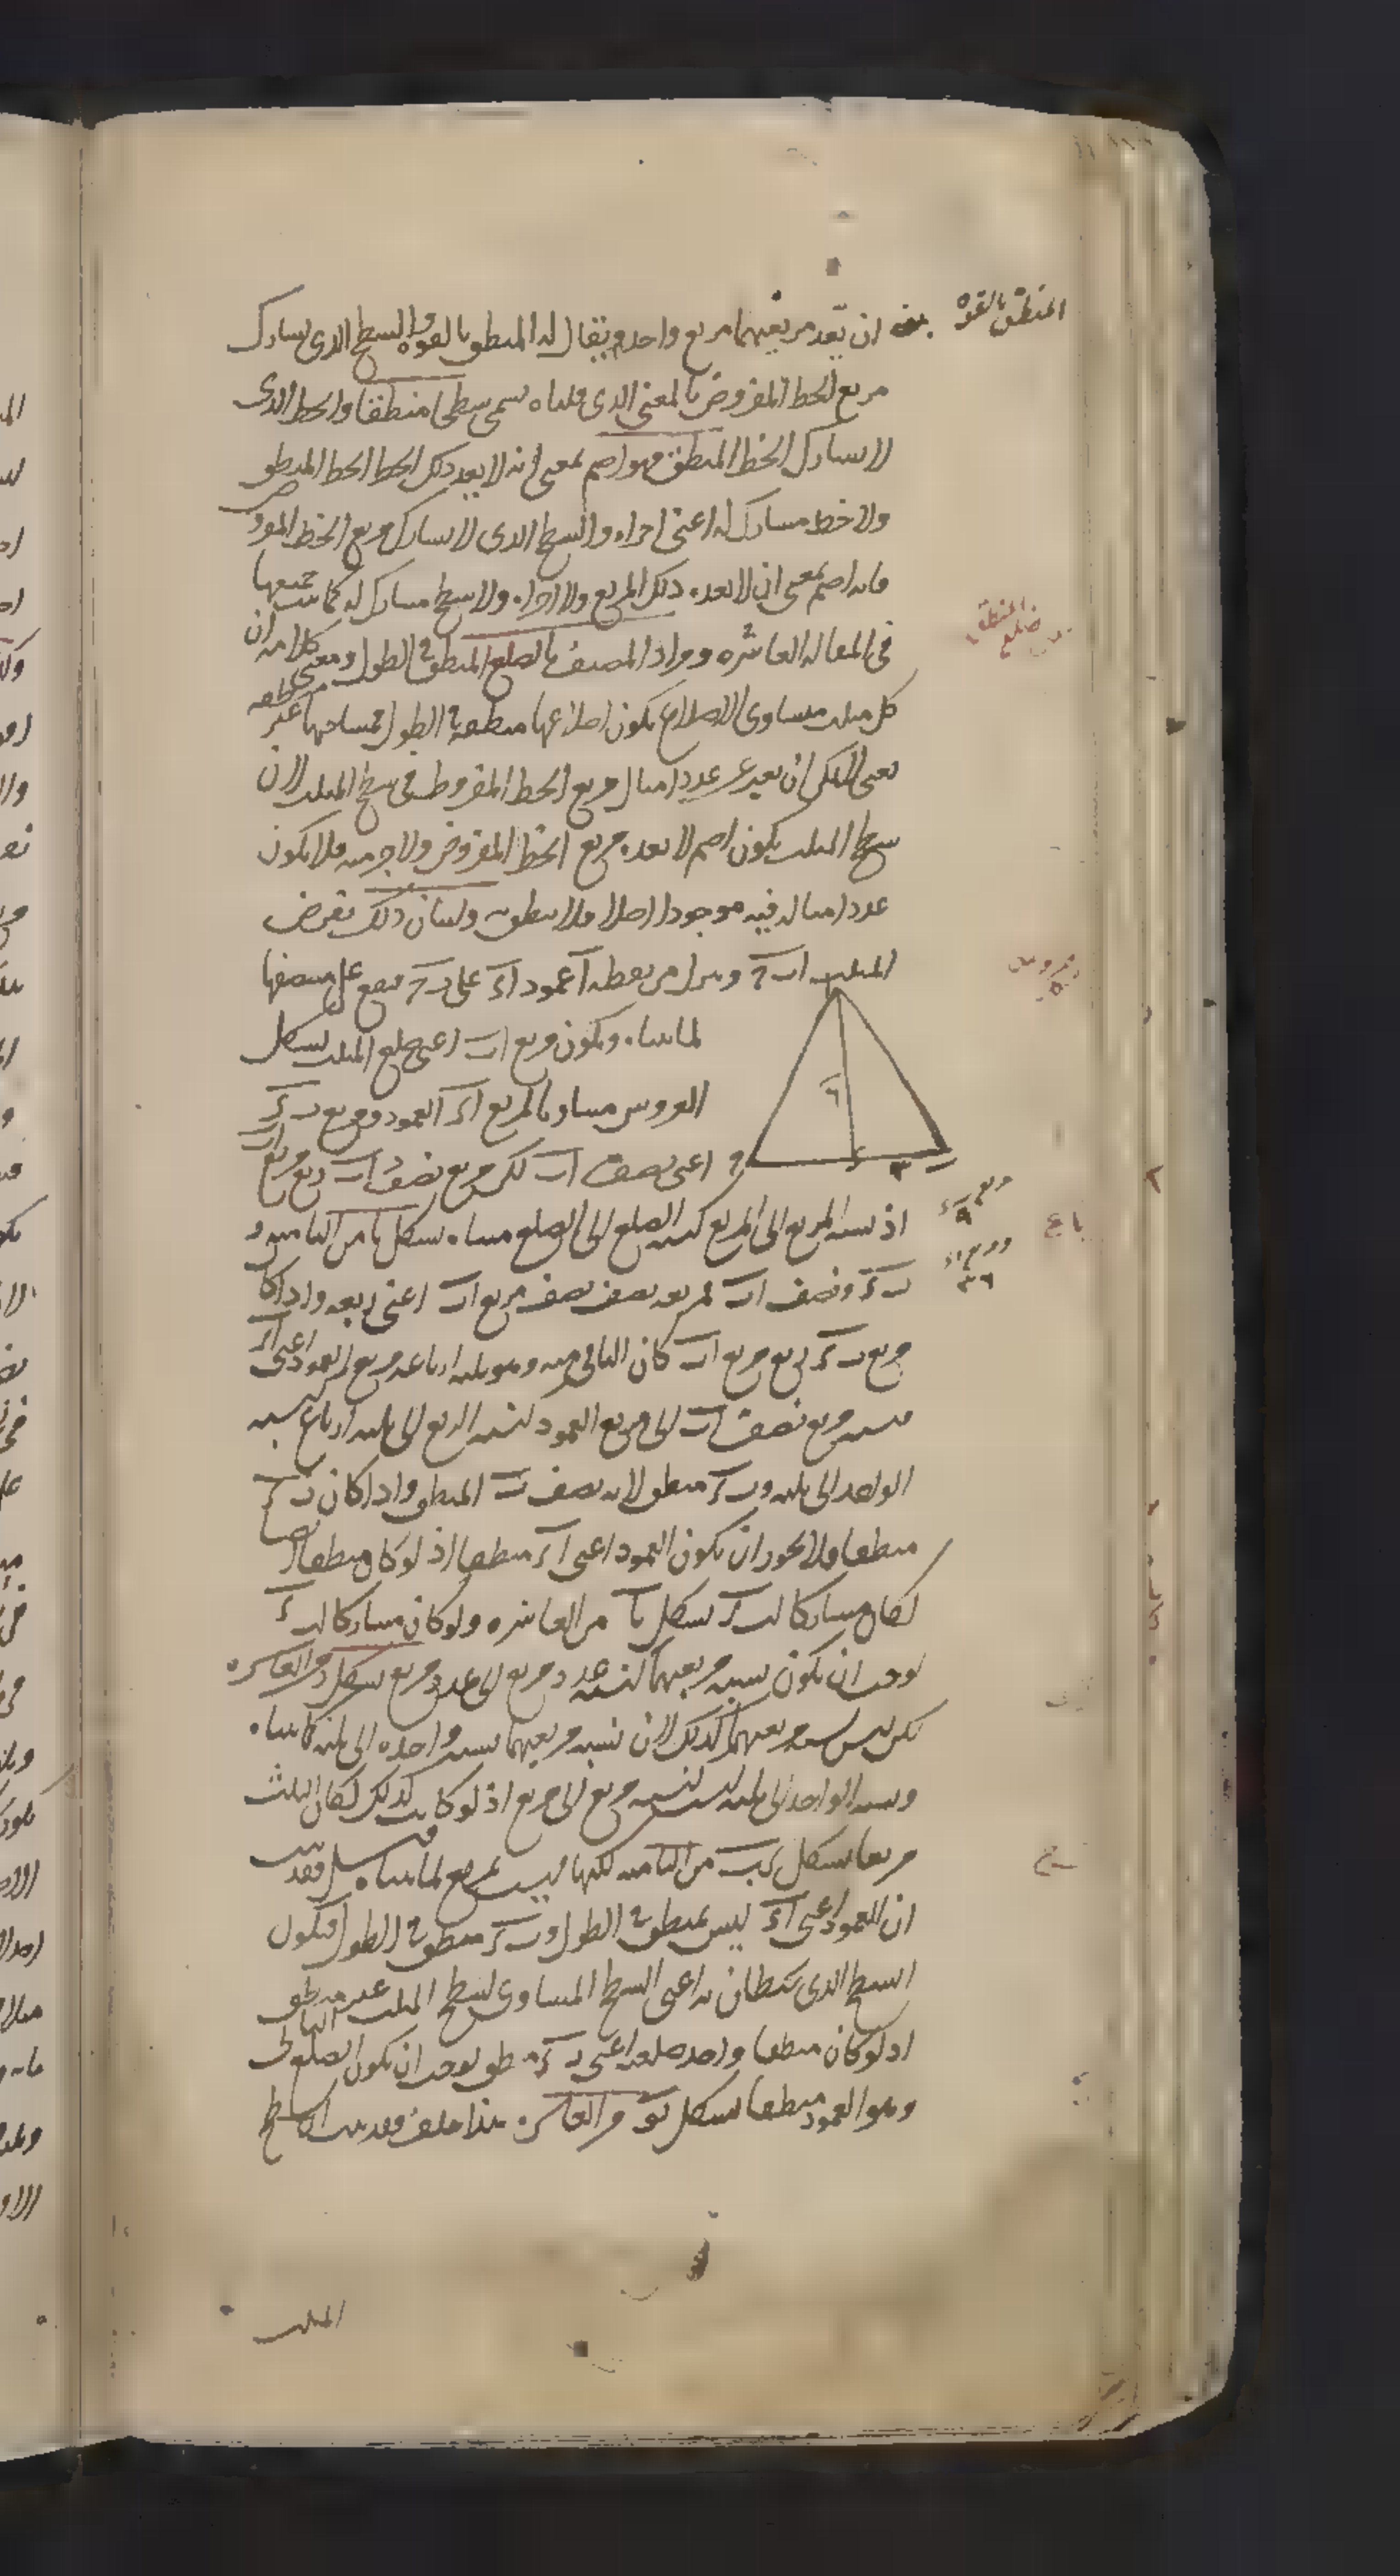 المنطق بالقوة
ان يعد مربعيهما مربع واحد ويقال له المنطق بالقوة والسطح الذى يشارك
مربع الخط المفروض بالمعنى الذى قلناه سمى سطحا منطقا والخط الذى
لا يشارك الخط المنطق فهو اصم بمعنى انه لا يعد ذلك الخط الخط المنطق
ولا خط مشارك له اعنى اجزاه والسطح الذى لا يشارك مربع الخط المفروض
فانه اصم بمعنى انه لا يعده ذلك المربع ولا اجزاه ولا سطح مشارك له كما
فى المقاله العاشره ومراد المصنف بالضلع المنطق فى الطول ومعنى كلامه ان
كل مثلث متساوى الاضلاع يكون اضلاعها منطقة فى الطول فمساحتها غير منطقه
يعنى لا يمكن ان يعبر عن عدد امثال مربع الخط المفروض فى سطح المثلث لان
سطح المثلث يكون اصم لا يعده مربع الخط المفروض ولا جزء منه فلا يكون
عدد امثاله فيه موجودا اصلا فلا ينطق به ولبيان ذلك نفرض
المثلث ا ب ج وننزل من نقطه ا عمود ا د على ب ج فيقع على منتصفها
لما بيناه ويكون مربع ا ب اعنى ضلع المثلث بشكل
العروس مساويا لمربع ا د العمود ومربع ب د
اعنى نصف ا ب لكن مربع نصف ا ب ربع مربع ا ب
اذ نسبه المربع الى المربع كنسبه الضلع الى الضلع مثناه بشكل يا من الثامنه و
ب د نصف ا ب فمربعه نصف نصف مربع ا ب اعنى ربعه واذا كا
مربع ب د ربع مربع ا ب كان الباقى منه وهو ثلثه ارباعه مربع العمود اعنى ا د
فنسبه مربع نصف ا ب الى مربع العمود كنسبه الربع الى ثلثه ارباع نسبه
الواحد الى ثلثه و ب د منطق لانه نصف ب ج المنطق واذا كان ب د
منطقا فلا يجوز ان يكون العمود اعنى ا د منطقا اذ لو كان منطقا ايضا
لكان مشاركا لب د بشكل يا من العاشره ولو كان مشاركا لب د
لوجب ان يكون نسبه مربعيهما كنسبه عدد مربع الى عدد مربع بشكل د من العاشره
لكن ليس نسبه مربعيهما كذلك لان نسبه مربعيهما نسبه واحده الى ثلثه كما بيناه
ونسبه الواحد الى ثلثه ليست كنسبه مربع الى مربع اذ لو كانت كذلك لكان الثلث
مربعا بشكل كب من الثامنه لكنها ليست بمربع لما بيناه فقد ثبت
ان العمود اعنى ا د ليس بمنطق فى الطول و ب د منطق فى الطول فيكون
السطح الذى يحيطان به اعنى السطح المساوى لسطح المثلث غير منطق
اذ لو كان منطقا واحد ضلعيه اعنى ب د منطق لوجب ان يكون الضلع الثانى
وهو العمود منطقا بشكل يو من العاشره هذا خلف فقد ثبت ان سطح
المثلث